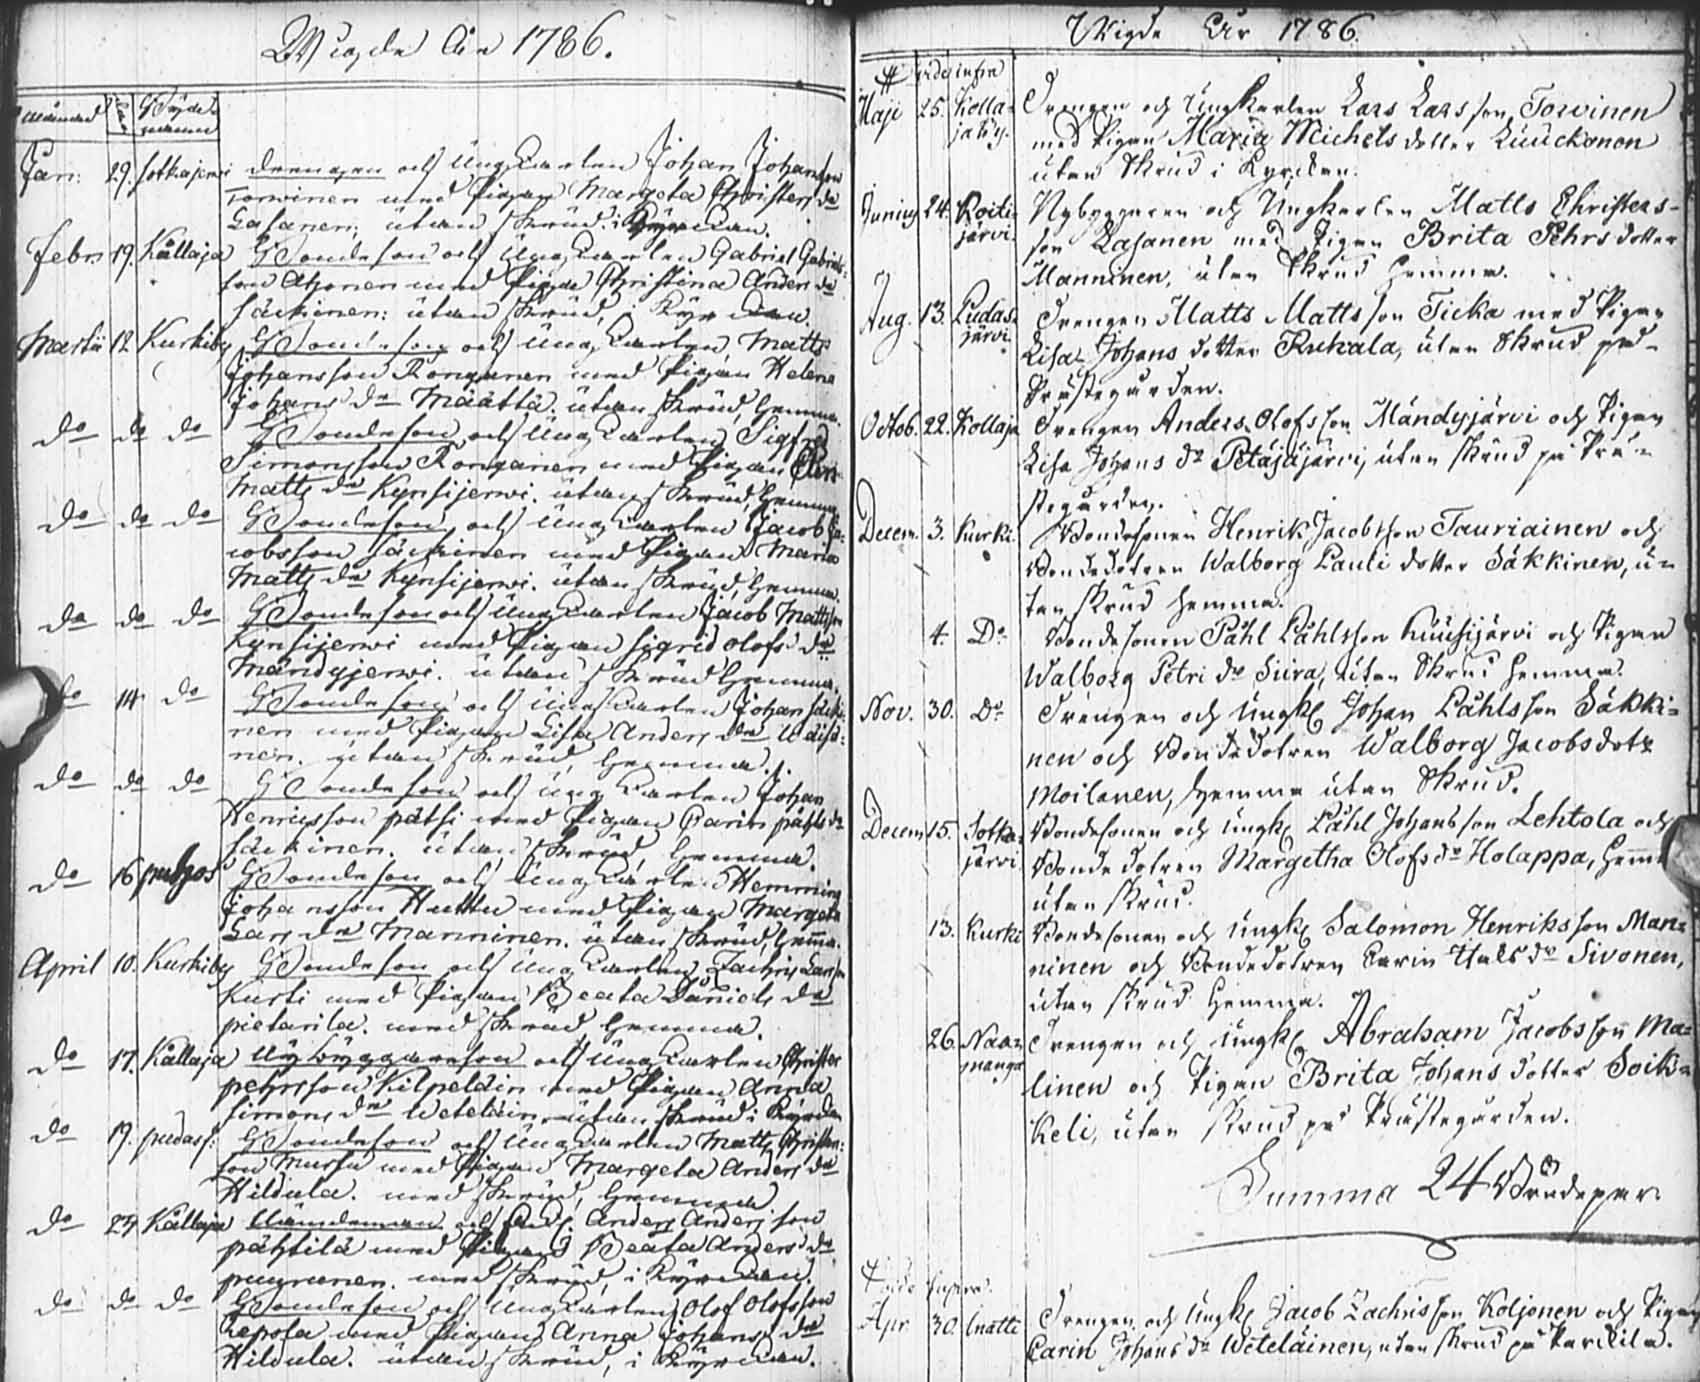 Wigde År 1786.
månad dag Bÿde- namn
Jan: 29. sotkajerwi drengen och Ungkarlen Johan Johansson
Torvinen med Pigan Margeta Christers dr
Lasanen; utan skrud i Kyrckan.
Febr. 19. Kållaja Bondeson och Ungkarlen Gabriel Gabriels-
son Ahonen med Pigan Christina Anders dr
säckinen: utan skrud, i Kyrckan.
Martii 12 Kurkiby Bondeson och Ungkarlen, Matts
Johansson Ronganen med Pigan Helena
Johans dr Määttä. utan skrud, hemma.
do do do Bondeson och Ungkarlen Sigfred
Simonsson Ronganen med Pigan
Matts dr Kynsijerwi. utan skrud, hemma
do do do Bondeson, och Ungkarlen Jacob Ja-
cobsson säckinen med Pigan Maria
Matts dr Kynsijerwi. utan skrud, hemma.
do do do Bondeson och Ungkarlen Jacob Mattsson
Kynsijerwi med Pigan Sigrid Olofs dr
Mändyjerwi. utan skrud hemma.
do 14 do Bondeson och Ungkarlen Johan säcki-
nen med Pigan Lisa Anders dr Wäisä-
nen. utan skrud, hemma.
do do do Bondeson och Ungkarlen Johan
Henricsson pätsi med Pigan Carin påhls dr
säckinen. utan skrud, hemma.
do 16 puhos Bondeson och Ungkarlen Hemming
Johansson Huttu med Pigan Margeta
Lars dr Manninen. utan skrud, hemma.
April 10. Kurkiby Bondeson och Ungkarlen Zachris Larsson
Kurki med Pigan Beata Daniels dr
pietarila. med skrud hemma.
do 17. Kållaja Nÿbÿggareson och Ungkarlen Christer
pehrsson Kilpeläin med Pigan Anna
simons dr Weteläin utan skrud i Kyrckan
do 19. pudasj: Bondeson och Ungkarlen Matts Christers-
son Mursu med Pigan Margeta Anders dr
Hildula. med skrud, hemma
do 24 Kållaja Nämdeman och Anders Anders son
pähtilä med Pigan Beata Anders dr
puurunen. med skrud, i Kyrckan.
do do do Bondeson och Ungkarlen Olof Olofsson
Reposa med Pigan Anna Johans dr
Hildula. utan skrud, i Kyrckan.
Wigde År 1786.
vide infra
Maji 25. Kolla-
jaby. Drengen och Ungkarlen Lars Larsson Torvinen
med Pigan Maria Michels dotter Luuckonen
utan Skrud i Kyrckan.
Junius 24. Koiti-
järvi. Nybyggaren och Ungkarlen Matts Christers-
son Lasanen med Pigan Brita Pehrs dotter
Manninen, utan Skrud hemma.
Aug. 13. Pudas-
järvi. Drengen Matts Mattsson Ticka med Pigan
Lisa Johans dotter Kukala, utan Skrud på
Prästegården.
Octob. 22. Kollaja Drengen Anders Olofsson Mändyjärvi och Pigan
Lisa Johans dr Petäjäjärvi, utan skrud på Prä-
stegården.
Decem. 3. Kurki. Bondesonen Henrik Jacobsson Tauriainen och
Bondedotren Walborg Pauli dotter Säkkinen, u-
tan skrud hemma.
4. Do Bondesonen Påhl Påhlsson Kuusijärvi och Pigan
Walborg Petri dr Siira, utan Skrud hemma.
Nov. 30. Do Drengen och Ungk. Johan Påhlsson Säkki-
nen och Bondedotren Walborg Jacobsdotr
Moilanen, hemma utan Skrud.
Decem 15. Sotka-
järvi Bondesonen och Ungk. Påhl Johansson Lehtola och
Bondedotren Margetha Olofs dr Holappa, hemma
utan skrud.
13. Kurki Bondesonen och Ungk. Salomon Henriksson Man-
ninen och Bondedotren Carin Nils dr Sivonen,
utan skrud hemma.
26. Naa-
manga Drengen och Ungk. Abraham Jacobsson Ma-
linen och Pigan Brita Johans dotter Soik-
keli, utan Skrud på Prästegården.
Summa 24 Brudepar.
Vide supra.
Apr 30. Inatti Drengen och Ungk. Jacob Zachrisson Koljonen och Pigan
Carin Johans dr Weteläinen, utan skrud på Parckila.